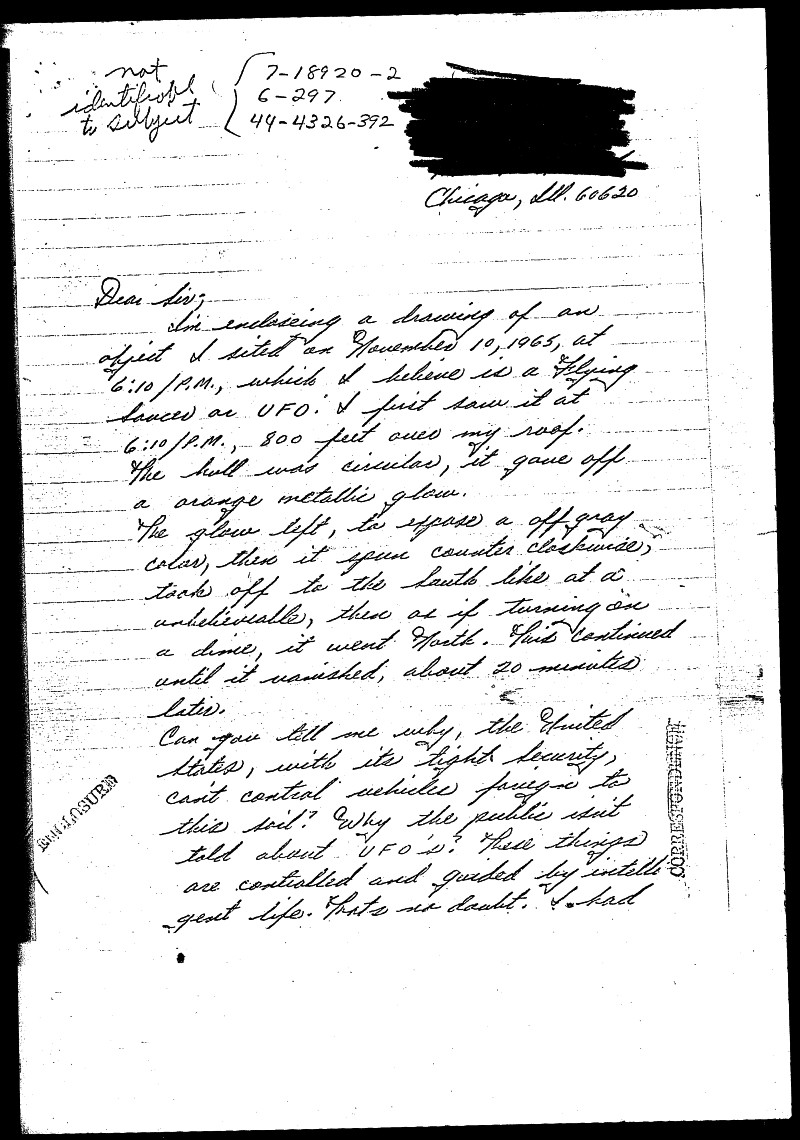 not
identifiable
to subject
7-18920-2
6-297
44-4326-392
Chicago, Ill. 60620
Dear Sir;
I'm enclosing a drawing of an
object I sited on November 10, 1965, at
6:10/P.M., which I believe is a Flying
Saucer or UFO. I first saw it at
6:10/P.M., 800 feet over my roof.
The hull was circular, it gave off
a orange metallic glow.
The glow left, to expose a off gray
color, then it spun counter clockwise,
took off to the South like at a
unbelieveable, then as if turning on
a dime, it went North. This continued
until it vanished, about 20 minutes
later.
Can you tell me why, the United
States, with its tight security,
can't control vehicles foreign to
this soil? Why the public isn't
told about UFO's? These things
are controlled and guided by intelli
gent life. Thats no doubt. I had
ENCLOSURE
CORRESPONDENCE